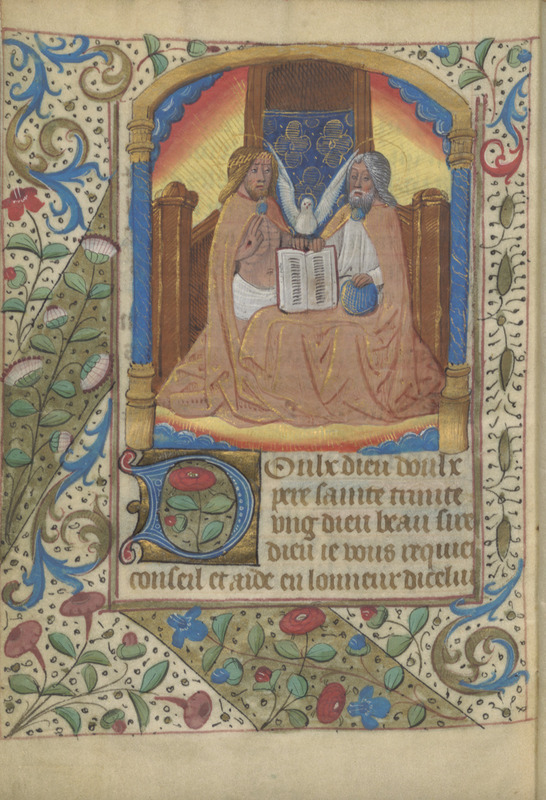 Doulx dieu doulx
pere sainte trinite
vng dieu beau sire
dieu ie vous requier
conseil et aide en lonneur dicelui